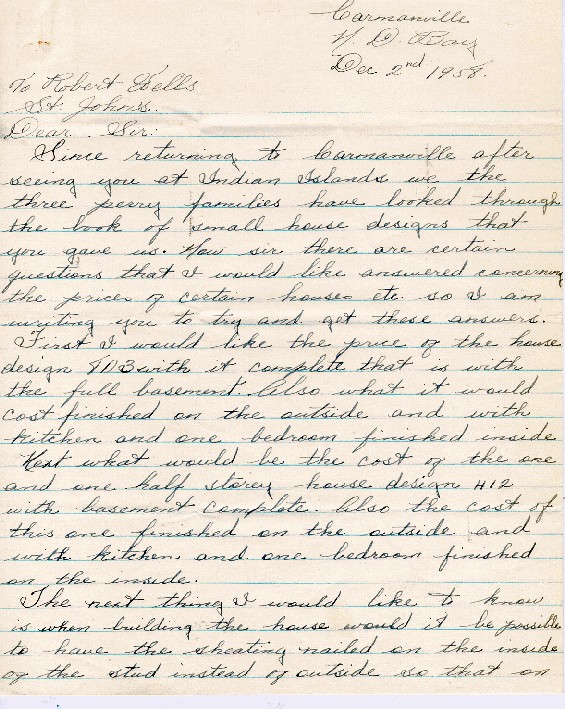 Carmanville
N. D. Bay
Dec 2nd 1958.
To Robert Wells
St. John's.
Dear Sir:
Since returning to Carmanville after
seeing you at Indian Islands we the
three perry families have looked through
the book of small house designs that
you gave us. Now sir there are certain
questions that I would like answered concerning
the price of certain houses etc. so I am
writing you to try and get these answers.
First I would like the price of the house
design with it complete that is with
the full basement. Also what it would
cost finished on the outside and with
kitchen and one bedroom finished inside
Next what would be the cost of the one
and one half storey house design 412
with basement complete. Also the cost of
this one finished on the outside and
with kitchen and one bedroom finished
on the inside.
The next thing I would like to know
is when building the house would it be possible
to have the sheating nailed on the inside
of the stud instead of outside so that on